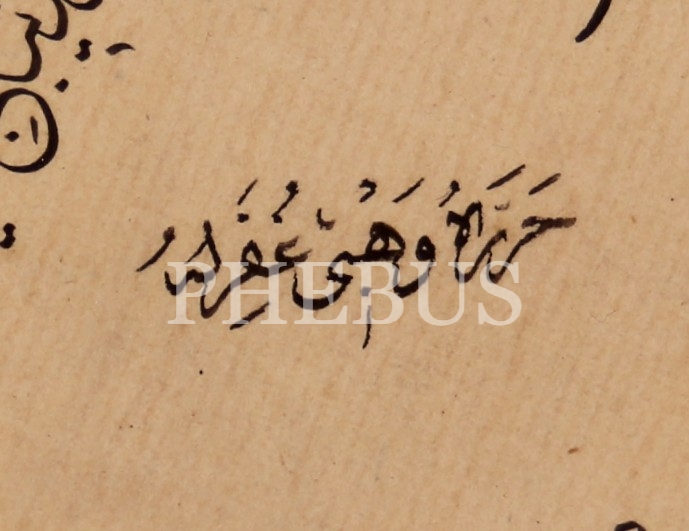 حَرَّرَهُ وَهْبِى غُفِرَ لَهُ
PHEBUS